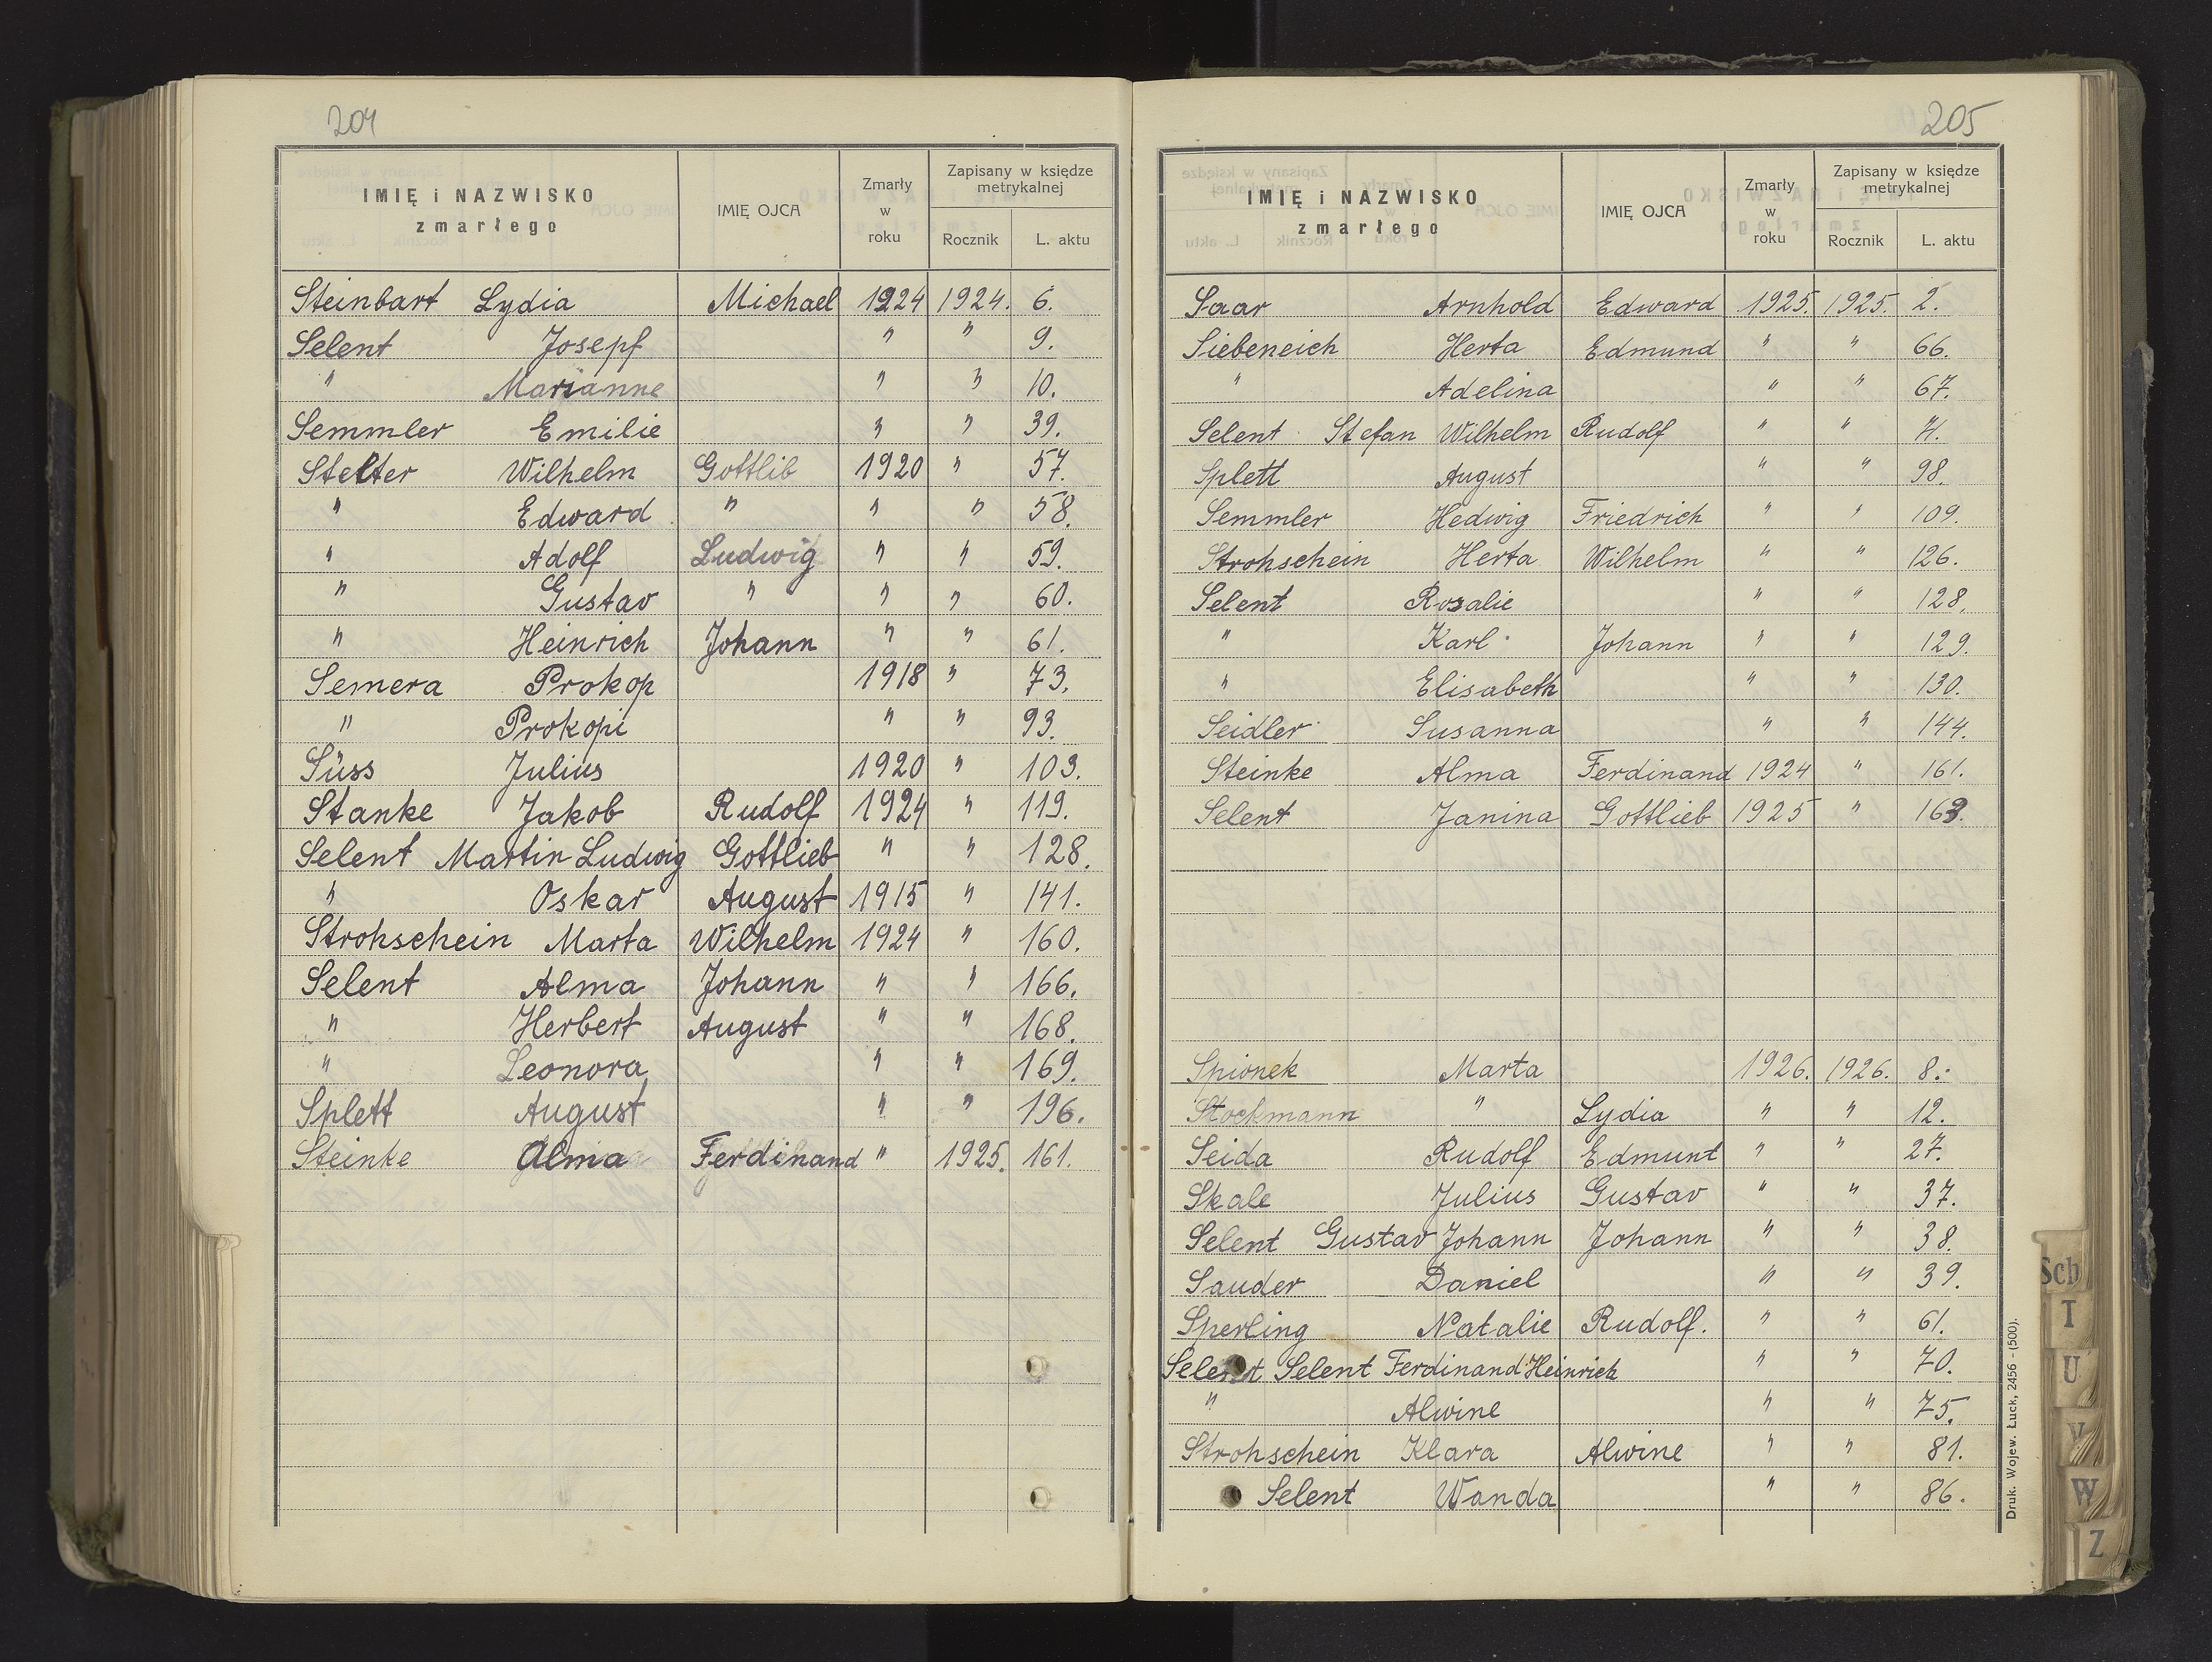 204
IMIĘ i NAZWISKO
zmarłego
IMIĘ OJCA
Zmarły
w
roku
Zapisany w księdze
metrykalnej
Rocznik
L. aktu
Steinbart Lydia Michael 1924 1924. 6.
Selent Josepf " " 9.
" Marianne " " 10.
Semmler Emilie " " 39.
Stelter Wilhelm Gottlib 1920 " 57.
" Edward " " " 58.
" Adolf Ludwig " " 59.
" Gustav " " " 60.
" Heinrich Johann " " 61.
Semera Prokop 1918 " 73.
" Prokopi " " 93.
Süss Julius 1920 " 103.
Stanke Jakob Rudolf 1924 " 119.
Selent Martin Ludwig Gottlieb " " 128.
" Oskar August 1915 " 141.
Strohschein Marta Wilhelm 1924 " 160.
Selent Alma Johann " " 166.
" Herbert August " " 168.
" Leonora " " 169.
Splett August " " 196.
Steinke Alma Ferdinand " 1925. 161.
205
IMIĘ i NAZWISKO
zmarłego
IMIĘ OJCA
Zmarły
w
roku
Zapisany w księdze
metrykalnej
Rocznik
L. aktu
Saar Arnhold Edward 1925. 1925. 2.
Siebeneich Herta Edmund " " 66.
" Adelina " " 67.
Selent Stefan Wilhelm Rudolf " "
Splett August " " 98.
Semmler Hedwig Friedrich " " 109.
Strohschein Herta Wilhelm " " 126.
Selent Rosalie " " 128.
" Karl Johann " " 129.
" Elisabeth " " 130.
Seidler Susanna " " 144.
Steinke Alma Ferdinand 1924 " 161.
Selent Janina Gottlieb 1925 " 163.
Spionek Marta 1926. 1926. 8.
Stockmann " Lydia " " 12.
Seida Rudolf Edmunt " " 27.
Skale Julius Gustav " " 37.
Selent Gustav Johann Johann " " 38.
Sauder Daniel " " 39.
Sperling Natalie Rudolf. " " 61.
Selent Selent Ferdinand Heinrich " " 70.
" Alwine " " 75.
Strohschein Klara Alwine " " 81.
Selent Wanda " " 86.
Druk. Wojew. Łuck, 2456 - (500).
Sch
T
U
V
W
Z